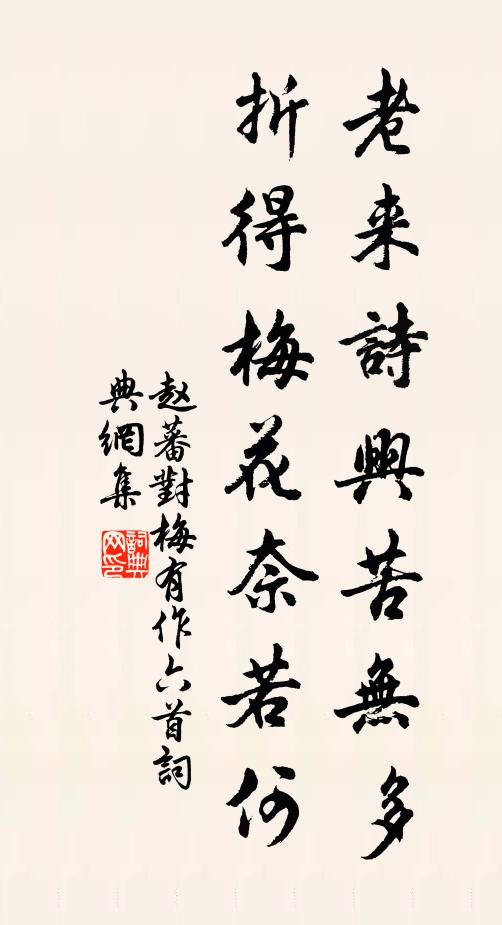 老来詩興苦無多
折得梅花奈若何
赵蕃對梅有作六首詞
典網集
詞典网印